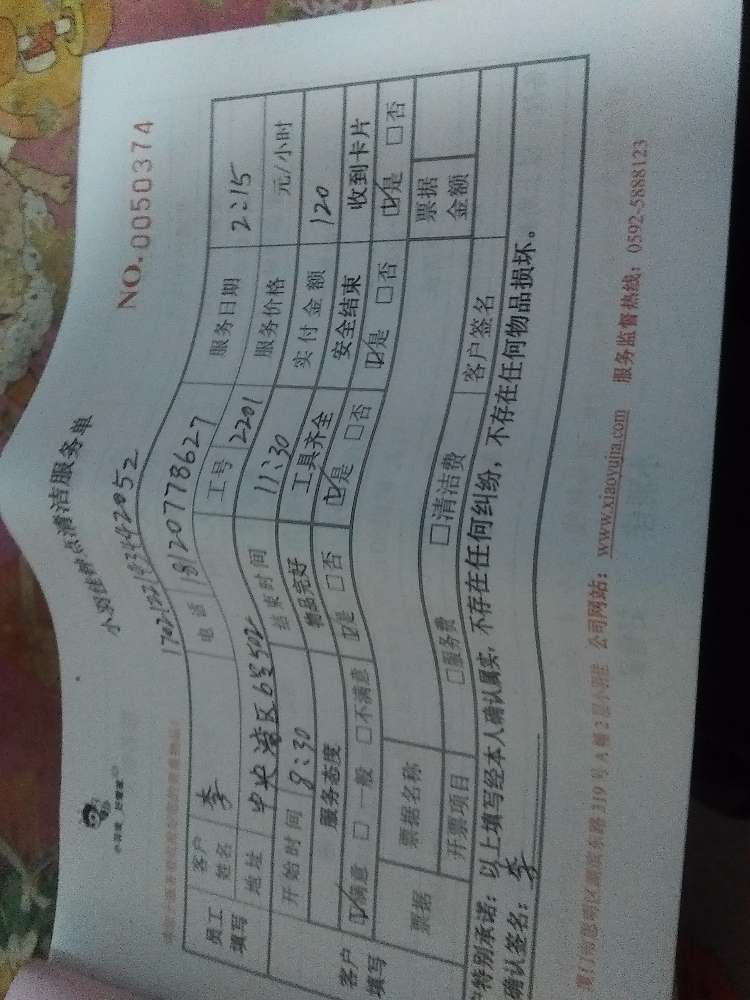 小羽佳 好管家
小羽佳钟点清洁服务单
NO.0050374
员工填写
客户姓名 李 电话 18120778627 服务日期 2:15
地址 中央湾区6号 工号 2201 服务价格 元/小时
开始时间 8:30 结束时间 11:30 实付金额 120
客户填写
服务态度 物品完好 工具齐全 安全结束 收到卡片
☑满意 □一般 □不满意 ☑是 □否 ☑是 □否 ☑是 □否 ☑是 □否
票据 票据名称 □服务费 □清洁费 票据金额
开票项目 客户签名
户特别承诺:以上填写经本人确认属实,不存在任何纠纷,不存在任何物品损坏。
确认签名:李
厦门市思明区湖滨东路319号A幢2层小羽佳 公司网站:www.xiaoyujia.com 服务监督热线:0592-5888123